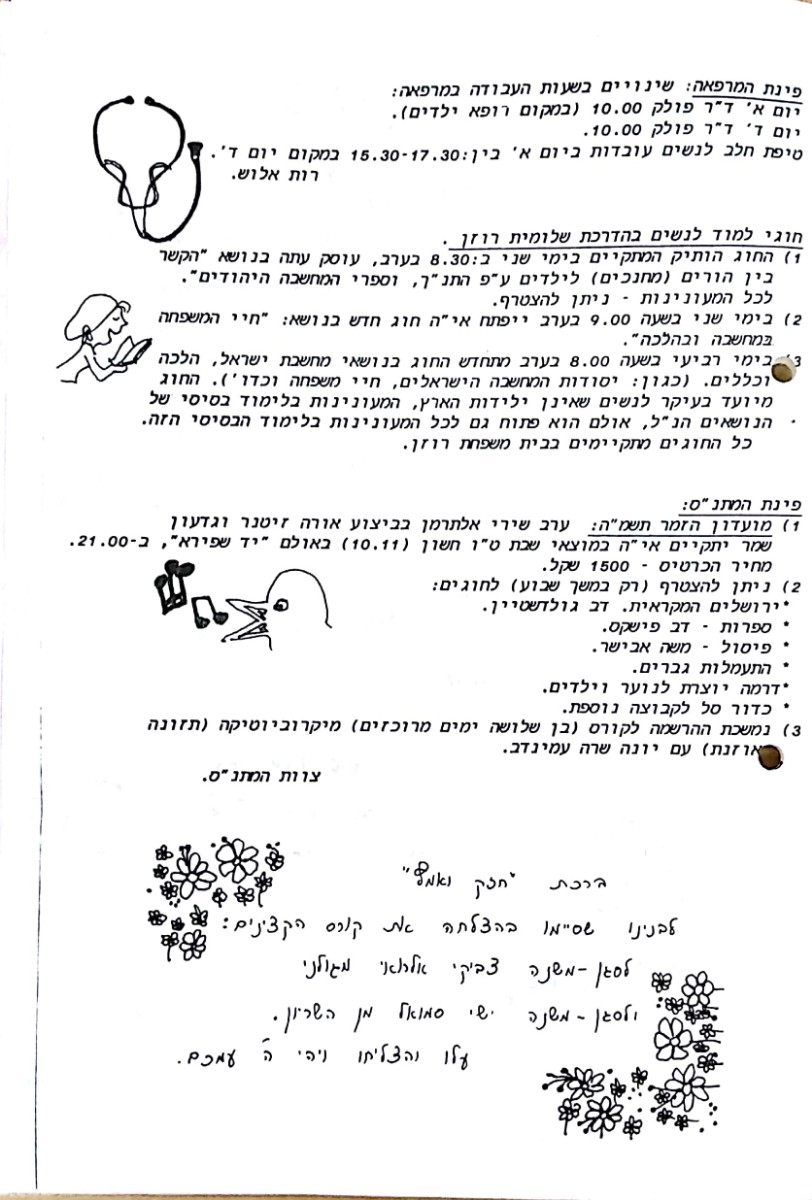 פינת המרפאה: שינויים בשעות העבודה במרפאה:
יום א' ד"ר פולק 10.00 (במקום רופא ילדים).
יום ד' ד"ר פולק 10.00.
טיפת חלב לנשים עובדות ביום א' בין:15.30-17.30 במקום יום ד'.
רות אלוש.
חוגי למוד לנשים בהדרכת שלומית רוזן .
1) החוג הותיק המתקיים בימי שני ב:8.30 בערב, עוסק עתה בנושא "הקשר
בין הורים (מחנכים) לילדים ע"פ התנ"ך, וספרי המחשבה היהודים".
לכל המעונינות - ניתן להצטרף.
2) בימי שני בשעה 9.00 בערב ייפתח אי"ה חוג חדש בנושא: "חיי המשפחה
במחשבה ובהלכה".
3) בימי רביעי בשעה 8.00 בערב מתחדש החוג בנושאי מחשבת ישראל, הלכה
וכללים. (כגון: יסודות המחשבה הישראלים, חיי משפחה וכדו'). החוג
מיועד בעיקר לנשים שאינן ילידות הארץ, המעונינות בלימוד בסיסי של
הנושאים הנ"ל, אולם הוא פתוח גם לכל המעונינות בלימוד הבסיסי הזה.
כל החוגים מתקיימים בבית משפחת רוזן.
פינת המתנ"ס:
1) מועדון הזמר תשמ"ה: ערב שירי אלתרמן בביצוע אורה זיטנר וגדעון
שמר יתקיים אי"ה במוצאי שבת ט"ו חשון (10.11) באולם "יד שפירא", ב-21.00.
מחיר הכרטיס - 1500 שקל.
2) ניתן להצטרף (רק במשך שבוע) לחוגים:
*ירושלים המקראית. דב גולדשטיין.
* ספרות - דב פישקס.
* פיסול - משה אבישר.
* התעמלות גברים.
*דרמה יוצרת לנוער וילדים.
* כדור סל לקבוצה נוספת.
3) נמשכת ההרשמה לקורס (בן שלושה ימים מרוכזים) מיקרוביוטיקה (תזונה
מאוזנת) עם יונה שרה עמינדב.
צוות המתנ"ס.
ברכת "חזק ואמץ"
לבנינו שסיימו בהצלחה את קורס הקצינים:
לסגן-משנה צביקי אלרואי מגולני
ולסגן-משנה ישי סמואל מן השריון.
עלו והצליחו ויהי ה' עמכם.